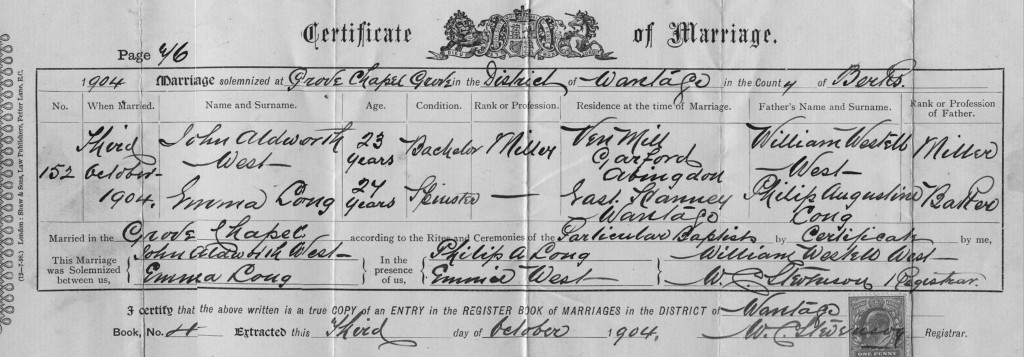 Certificate of Marriage.
Page 76
1904 Marriage solemnized at Grove Chapel Grove in the District of Wantage in the County of Berks.
No. When Married. Name and Surname. Age. Condition. Rank or Profession. Residence at the time of Marriage. Father's Name and Surname. Rank or Profession of Father.
152 Third October 1904. John Aldworth West 23 years Bachelor Miller Ven Mill Garford Abingdon William Westell West Miller
Emma Long 27 years Spinster — East Hanney Wantage Philip Augustine Long Baker
Married in the Grove Chapel according to the Rites and Ceremonies of the Particular Baptists by Certificate by me,
This Marriage was Solemnized between us, John Aldworth West Emma Long In the presence of us, Philip A Long Emmie West William Westell West W. C. Stevenson Registrar.
I certify that the above written is a true COPY of an ENTRY in the REGISTER BOOK OF MARRIAGES IN THE DISTRICT OF Wantage
Book, No. 4 Extracted this Third day of October 1904. W. C. Stevenson Registrar.
ONE PENNY
London: Shaw & Sons, Law Publishers, Fetter Lane, E.C.